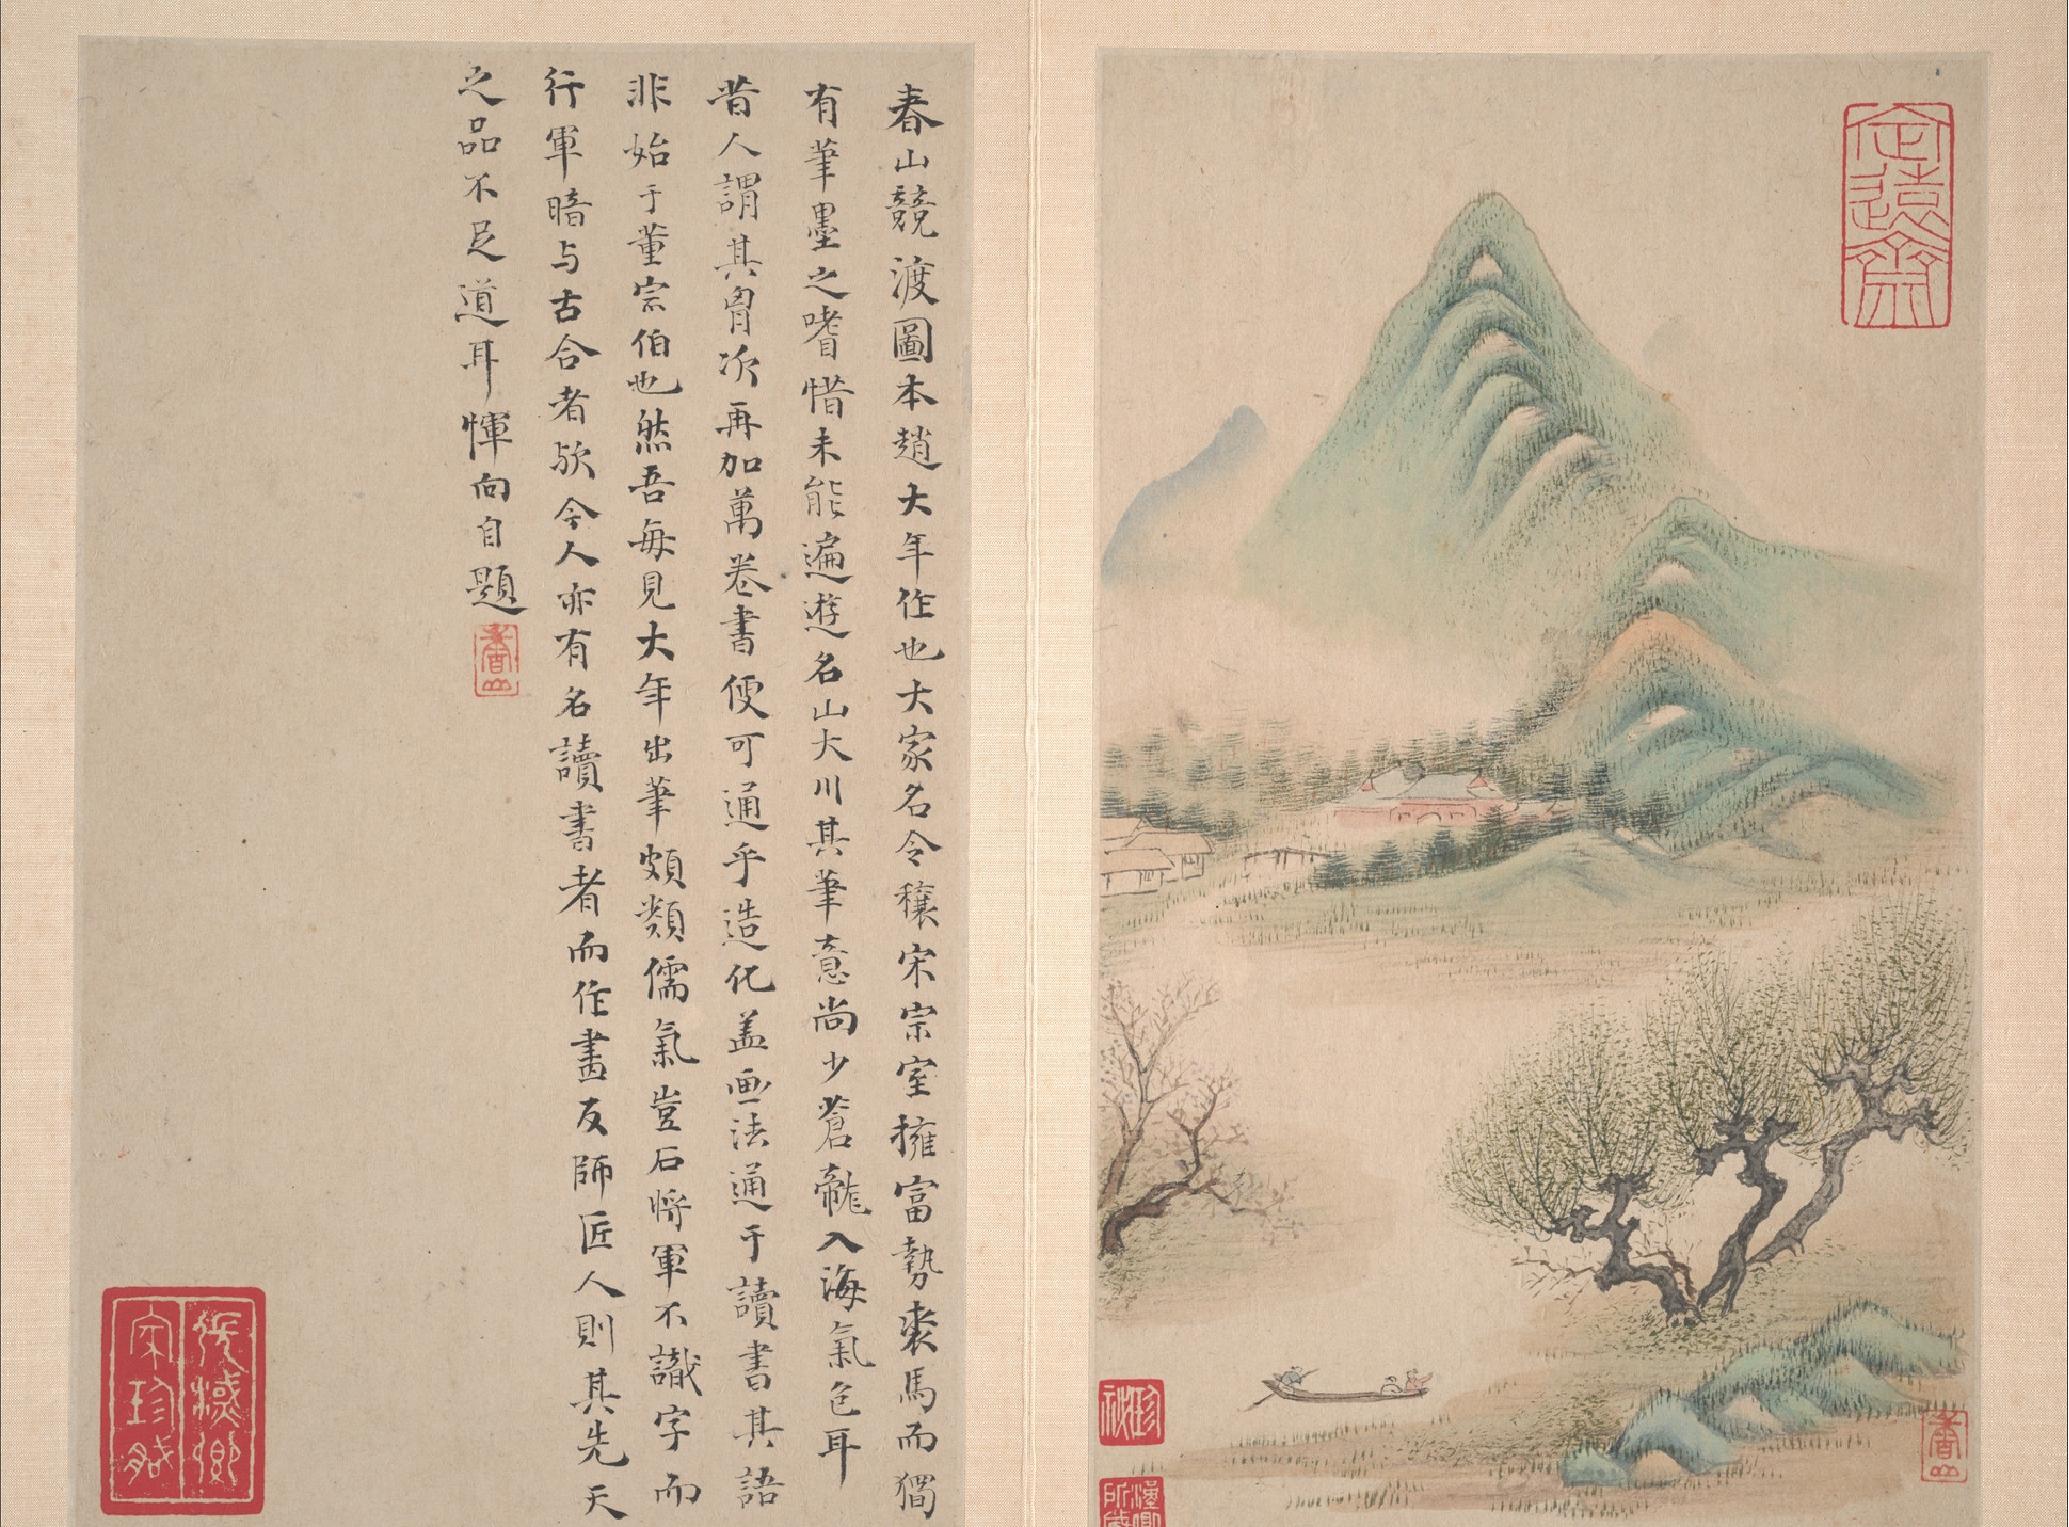 春山競渡圖本趙大年作也大家名令穰宋宗室擁富勢裘馬而獨
有筆墨之嗜惜未能遍遊名山大川其筆意尚少蒼龍入海氣色耳
昔人謂其胷次再加萬卷書便可通乎造化盖画法通于讀書其語
非始于董宗伯也然吾每見大年出筆頗類儒氣豈石將軍不識字而
行軍暗与古合者欤今人亦有名讀書者而作畫反師匠人則其先天
之品不足道耳惲向自題
香山
定遠齋
香山
珍秘